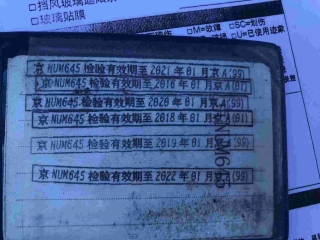 □挡风玻璃
□玻璃贴膜
□M=故障 □SC=划伤
□U=已使用迹象
京NUM645 检验有效期至2021年01月京A(99)
京NUM645 检验有效期至2016年01月京A(01)
京NUM645 检验有效期至2020年01月京A(99)
京NUM645 检验有效期至2018年01月京A(01)
京NUM645 检验有效期至2019年01月京A(99)
京NUM645 检验有效期至2022年01月京A(99)